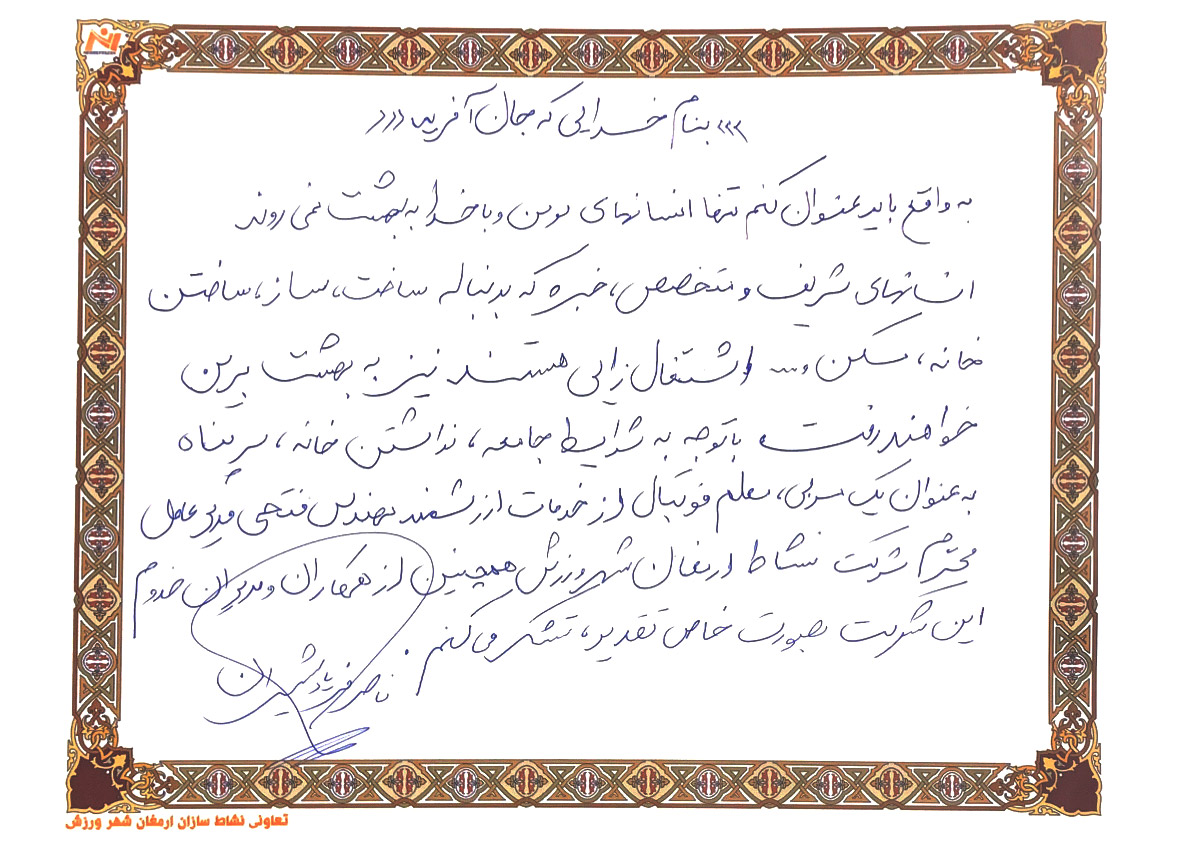 ««« بنام خدایی که جان آفرید »»»
به واقع باید عنوان کنم تنها انسانهای مومن و با خدا به بهشت نمی روند
انسانهای شریف و متخصص، خبره که بدنباله ساخت، ساز، ساختن
خانه، مسکن و... اشتغال زایی هستند نیز به بهشت برین
خواهند رفت. باتوجه به شرایط جامعه، نداشتن خانه، سرپناه
به عنوان یک مربی، معلم فوتبال از خدمات ارزشمند مهندس فتحی مدیر عامل
محترم شرکت نشاط ارمغان شهر ورزش همچنین از همکاران و مدیران خدوم
این شرکت بصورت خاص تقدیر، تشکر می کنم.
ناصر فریادشیران
تعاونی نشاط سازان ارمغان شهر ورزش